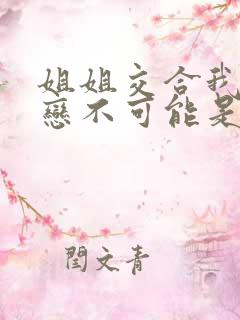 姐姐交合我
戀不可能是
閆文青